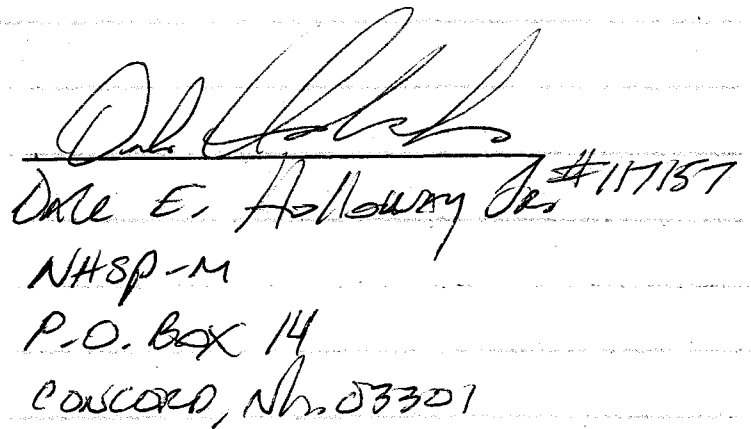 Dale E. Holloway Jr. #117157
NHSP-M
P.O. BOX 14
CONCORD, Nh. 03301